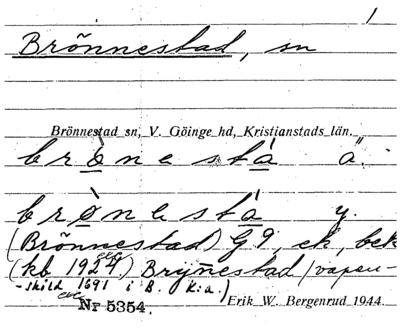 1
Brönnestad, sn
Brönnestad sn, V. Göinge hd, Kristianstads län.
brònestá ä.
brø̀nestá y.
(Brönnestad) G 9, ek, bek
(kb 1927.) Brÿnestad (vapen-
-sköld 1691 i B. k:a.)
Nr 5354.
Erik W. Bergenrud 1944.